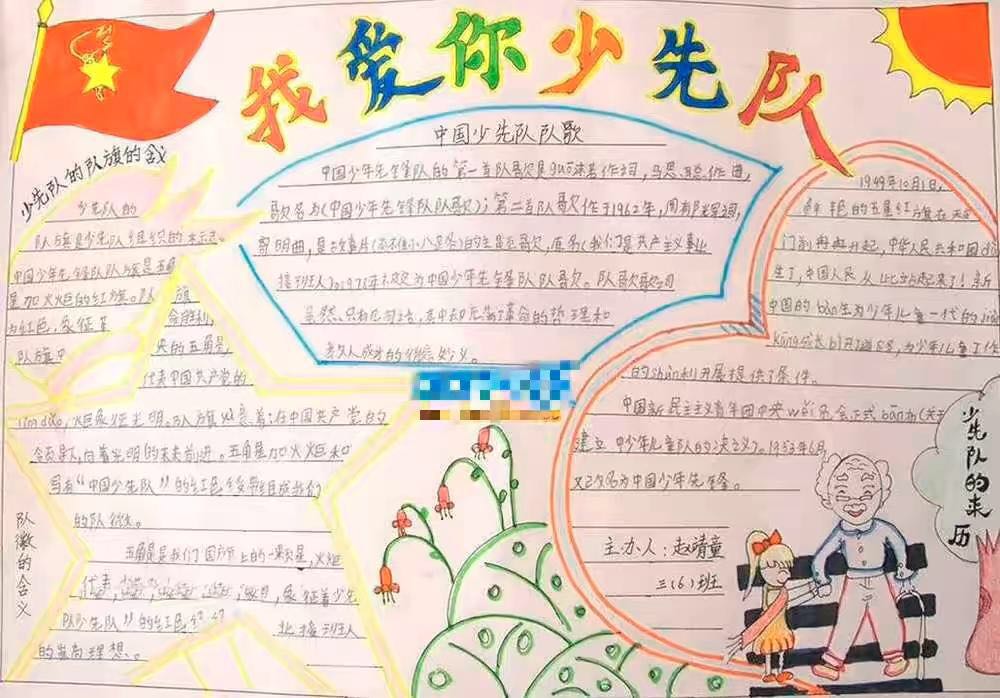 我爱你少先队
少先队的队旗的含义
少先队的
队旗是少先队组织的标志。
中国少年先锋队队旗是五角
星加火炬的红旗。队旗
为红色,象征革命胜利,
队旗中央的五角星,
代表中国共产党的
lǐng dǎo,火炬象征光明。队旗意着:在中国共产党的
领导下,向着光明的未来前进。五角星加火炬和
写有“中国少先队”的红色绶带组成我们
的队徽。
队徽的含义
五角星是我们国旗上的一颗星,火炬
代表
象征着少先
队少先队”的红色
接班人
的崇高理想。
中国少先队队歌
中国少年先锋队的第一首队歌是guō沫若作词,马思聪作曲,
歌名为《中国少年先锋队队歌》;第二首队歌作于1962年,周郁辉词,
寄明曲,是故事片《英雄小八路》的主题歌,原名《我们是共产主义事业
接班人》,1978年被定为中国少年先锋队队歌。队歌歌词
虽然只有
理和
妙义。
1949年10月1日,
鲜艳的五星红旗在天安
门前冉冉升起,中华人民共和国dàn
生了,中国人民从此站起来了!新
中国的dàn生为少年儿童一代的jiàn
kāng成长bì开了道路,为少年儿童工作
的shùn利开展提供了条件。
中国新民主主义青年团中央wěi员会正式bān为《关于
建立中少年儿童队的决议》。1953年6月,
又改名为中国少年先锋。
主办人:赵靖童
三(6)班
少先队的来历